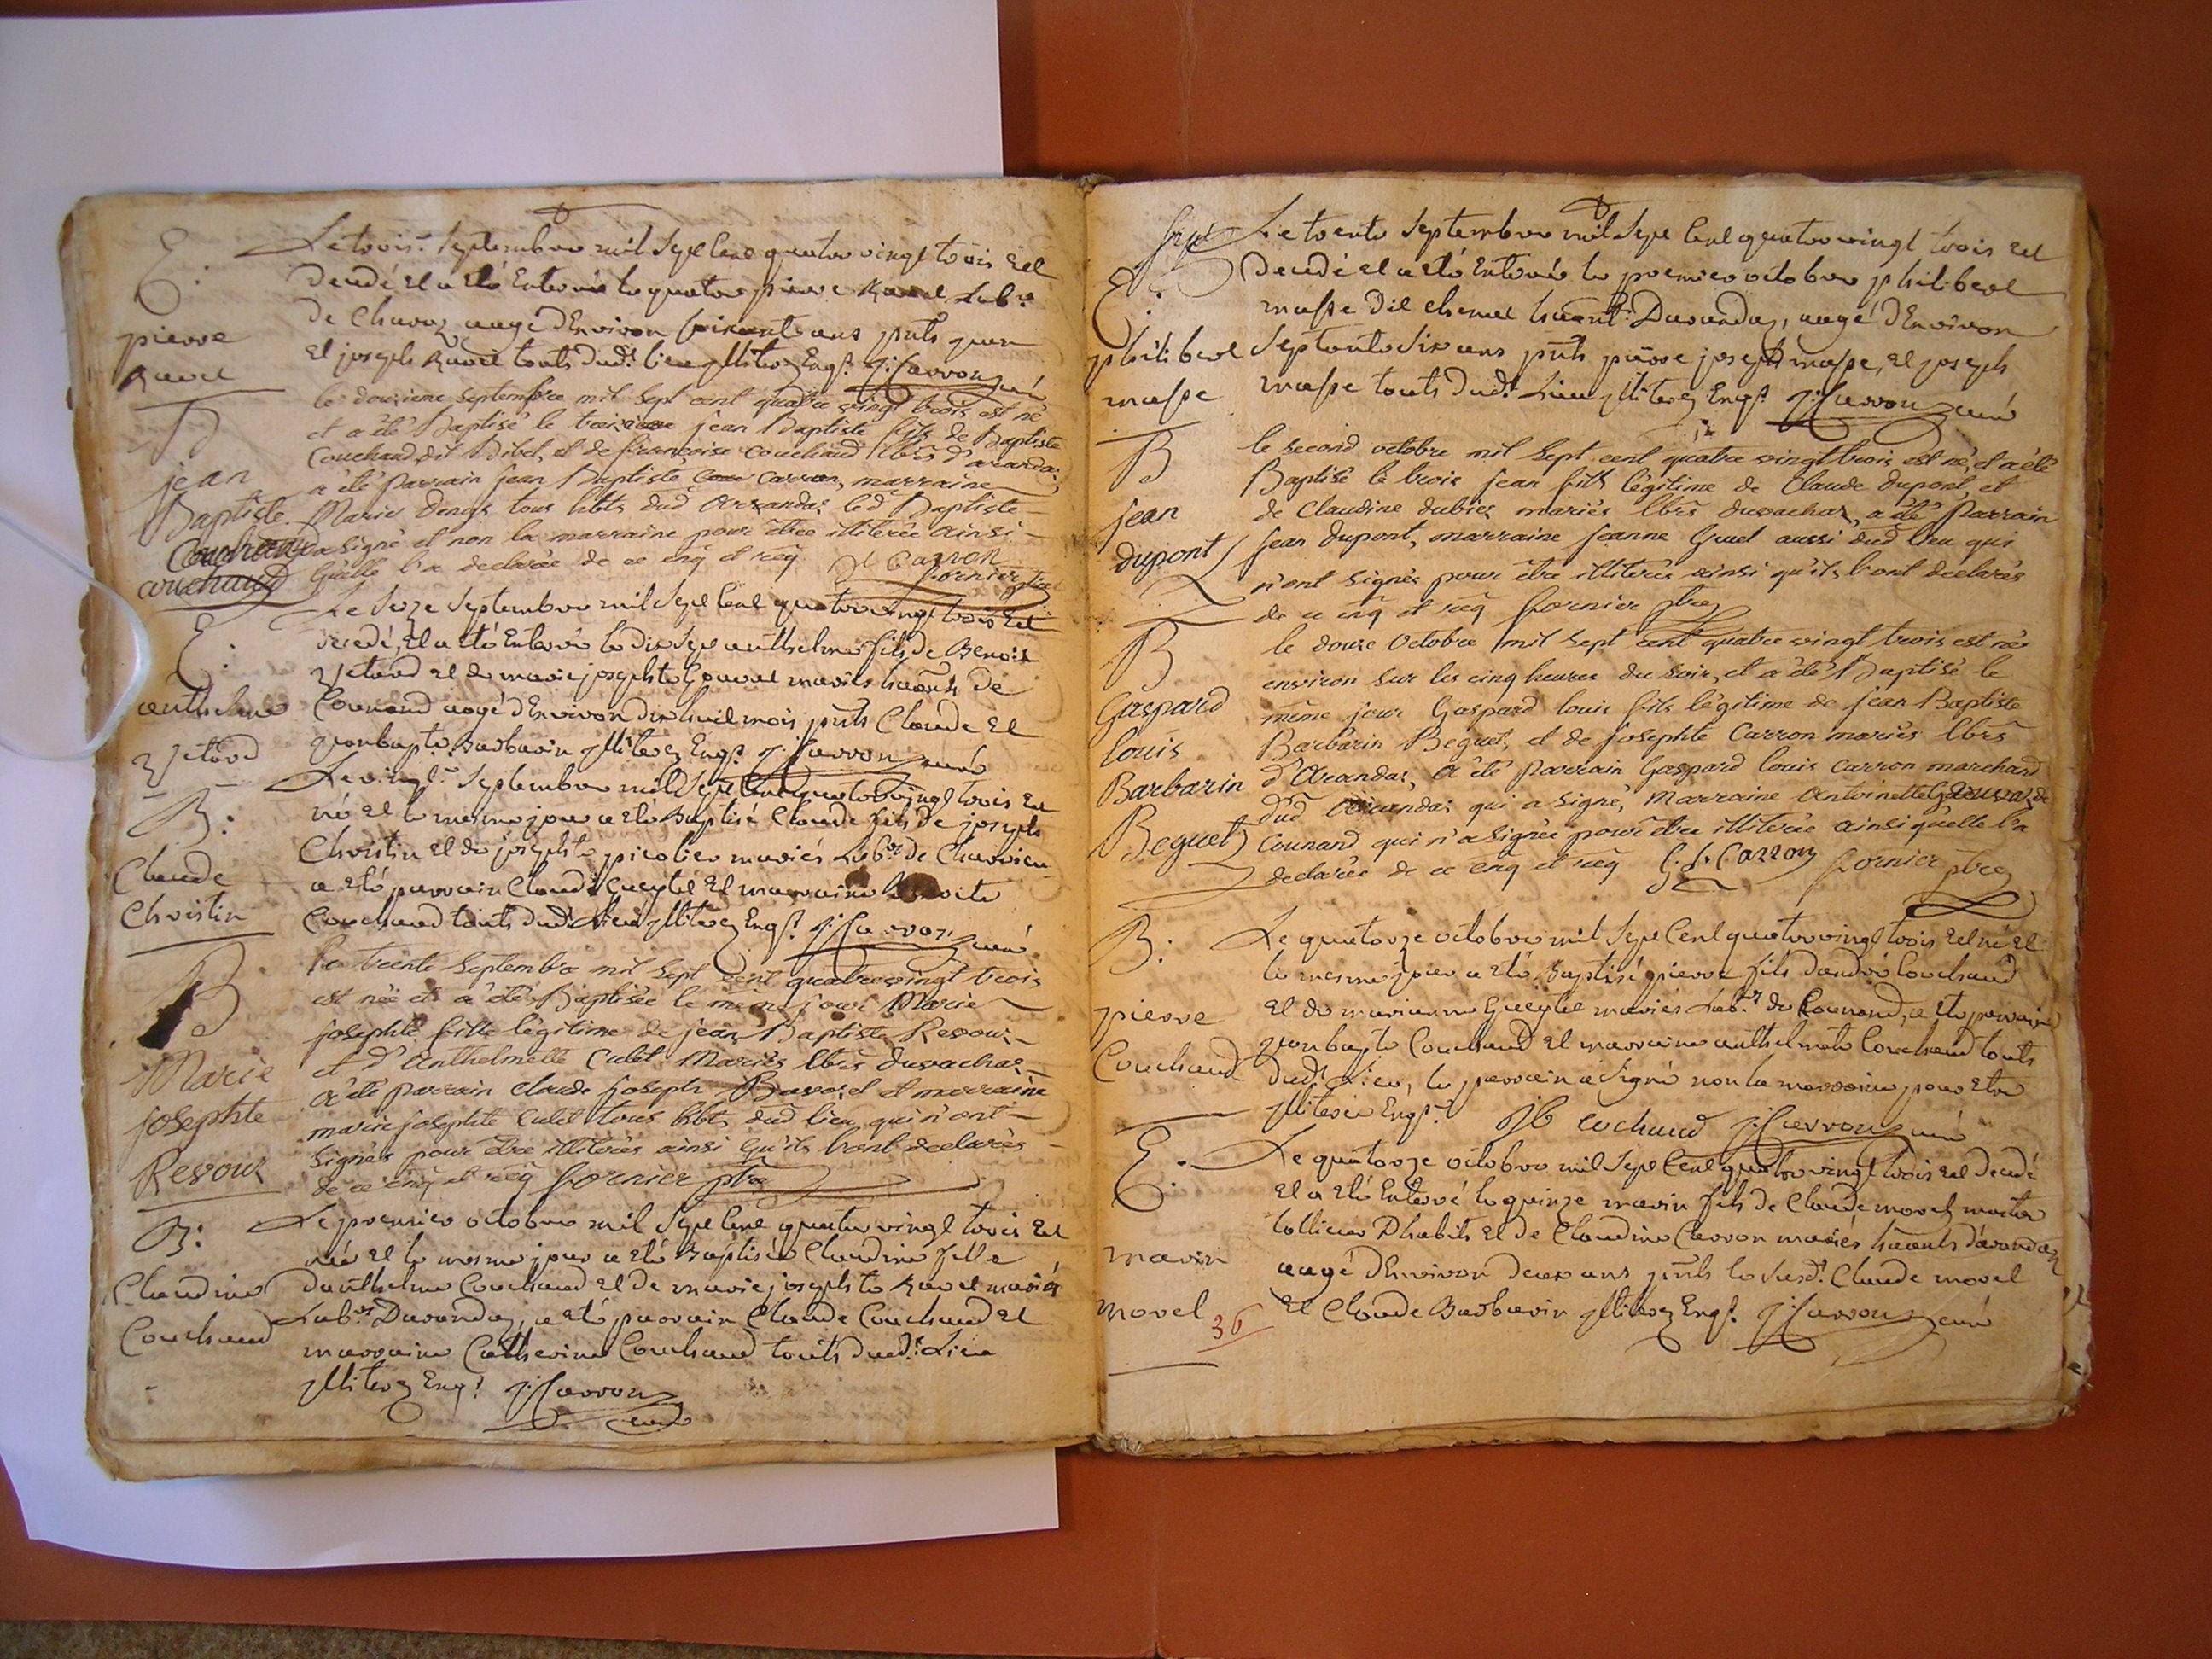 E.
pierre
Ravel
Le trois.e Septembre mil Sept Cent quatre vingt trois Est
Decedé Et a Eté Enterré le quatre pierre Ravel Lab.r
de Charvaz, aagé dEnviron soixante ans pnts
Et joseph Ravel touts dud.t lieu jlliterez Enq.s j: Carron curé
B
jean
Baptiste
couchaud
le douzieme Septembre mil Sept cent quatre vingt trois est né
et a été Baptisé le treizieme jean Baptiste fils de Baptiste
Couchaud dit Bibet, et de françoise couchaud lbrs d'arandas
a été Parrain jean Baptiste Carron, marraine
Marie tous hbts dud Arandas led Baptiste
a signé et non la marraine pour être illiterée ainsi
Quelle l'a declarée de ce enq et req JB Carron
fornier ptre
E:
anthelme
Le Seize Septembre mil Sept Cent quatre vingt trois Est
decedé, Et a Eté Enterré le dix Sept anthelme fils de Benoit
Et de marie josephte mariés haõnts de
Counand aagé dEnviron dix huit mois pnts Claude Et
jeanbapte Barbarin jlliterez Enq.s j: Carron curé
B:
Claude
Christin
Le vingt.e Septembre mil Sept Cent quatre vingt trois Est
né Et le mesme jour a Eté Baptisé Claude fils de joseph
Christin Et de josephte picolier mariés Lab.rs de Charvieu
a Eté parrain Claude Gueytet Et marraine Benoite
Couchaud touts dud.t Lieu jlliterez Enq.s j: Carron curé
B
Marie
josephte
Revoux
Le trente Septembre mil Sept cent quatre vingt trois
est née et a été Baptisée le même jour Marie
josephte fille légitime de jean Baptiste Revoux
et d'Anthelmette Culet Mariés lbrs duvachat
a été Parrain claude joseph et marraine
marie josephte Culet tous hbts dud lieu qui n'ont
signés pour être illiterés ainsi qu'ils l'ont declarés
de ce enq et req fornier ptre
B:
Claudine
Couchaud
Le premier octobre mil Sept Cent quatre vingt trois Est
née Et le mesme jour a Eté Baptisée Claudine fille
danthelme Couchaud Et de marie josephte Ravel mariés
Lab.rs Darandaz, a Eté parrain Claude Couchaud Et
marraine Catherine Couchaud touts dud.t Lieu
jlliterez Enq.s j: Carron
curé
Sept
E.
philibert
masse
Le trente Septembre mil Sept Cent quatre vingt trois Est
Decedé Et a Eté Enterré le premier octobre philibert
masse dit haõnt Darandaz, aagé dEnviron
Septante Six ans pnts pierre joseph masse, Et joseph
masse touts dud.t Lieu jlliterez Enq.s j: Carron curé
B
jean
dupont
le second octobre mil Sept cent quatre vingt trois est né, et a été
Baptisé le trois jean fils légitime de Claude dupont, et
de Claudine dubiez mariés lbrs duvachat, a été Parrain
jean Dupont, marraine jeanne Gruel aussi dud lieu qui
n'ont signés pour être illiterés ainsi qu'ils l'ont declarés
de ce enq et req fornier ptre
B
Gaspard
louis
Barbarin
Beguet
le douze Octobre mil Sept cent quatre vingt trois est né
environ sur les cinq heures du soir, et a été Baptisé le
même jour Gaspard louis fils légitime de jean Baptiste
Barbarin Beguet, et de josephte Carron mariés lbrs
d'Arandas, a été Parrain Gaspard louis carron marchand
dud Arandas qui a signé, Marraine Antoinette de
Counand qui n'a signée pour être illiterée ainsi quelle l'a
declarée de ce enq et req G. L. Carron fornier ptre
B:
pierre
Couchaud
Le quatorze octobre mil Sept Cent quatre vingt trois Est né Et
le mesme jour a Eté Baptisé pierre fils dandré Couchaud
Et de marianne Gueytet mariés Lab.rs de Counand, a Eté parrain
jeanbapte Couchaud Et marraine anthelmete Couchaud touts
dud.t Lieu, le parrain a signé non la marraine pour Etre
jlliterée Enq.se jb cochaud j: Carron curé
E.
marin
morel 36
Le quatorze octobre mil Sept Cent quatre vingt trois Est decedé
Et a Eté Enterré le quinze marin fils de Claude morel maitre
tallieur Dhabits Et de Claudine Carron mariés haõnts darandaz
aagé dEnviron deux ans pnts le Susd.t Claude morel
Et Claude Barbarin jlliterez Enq.s j: Carron curé